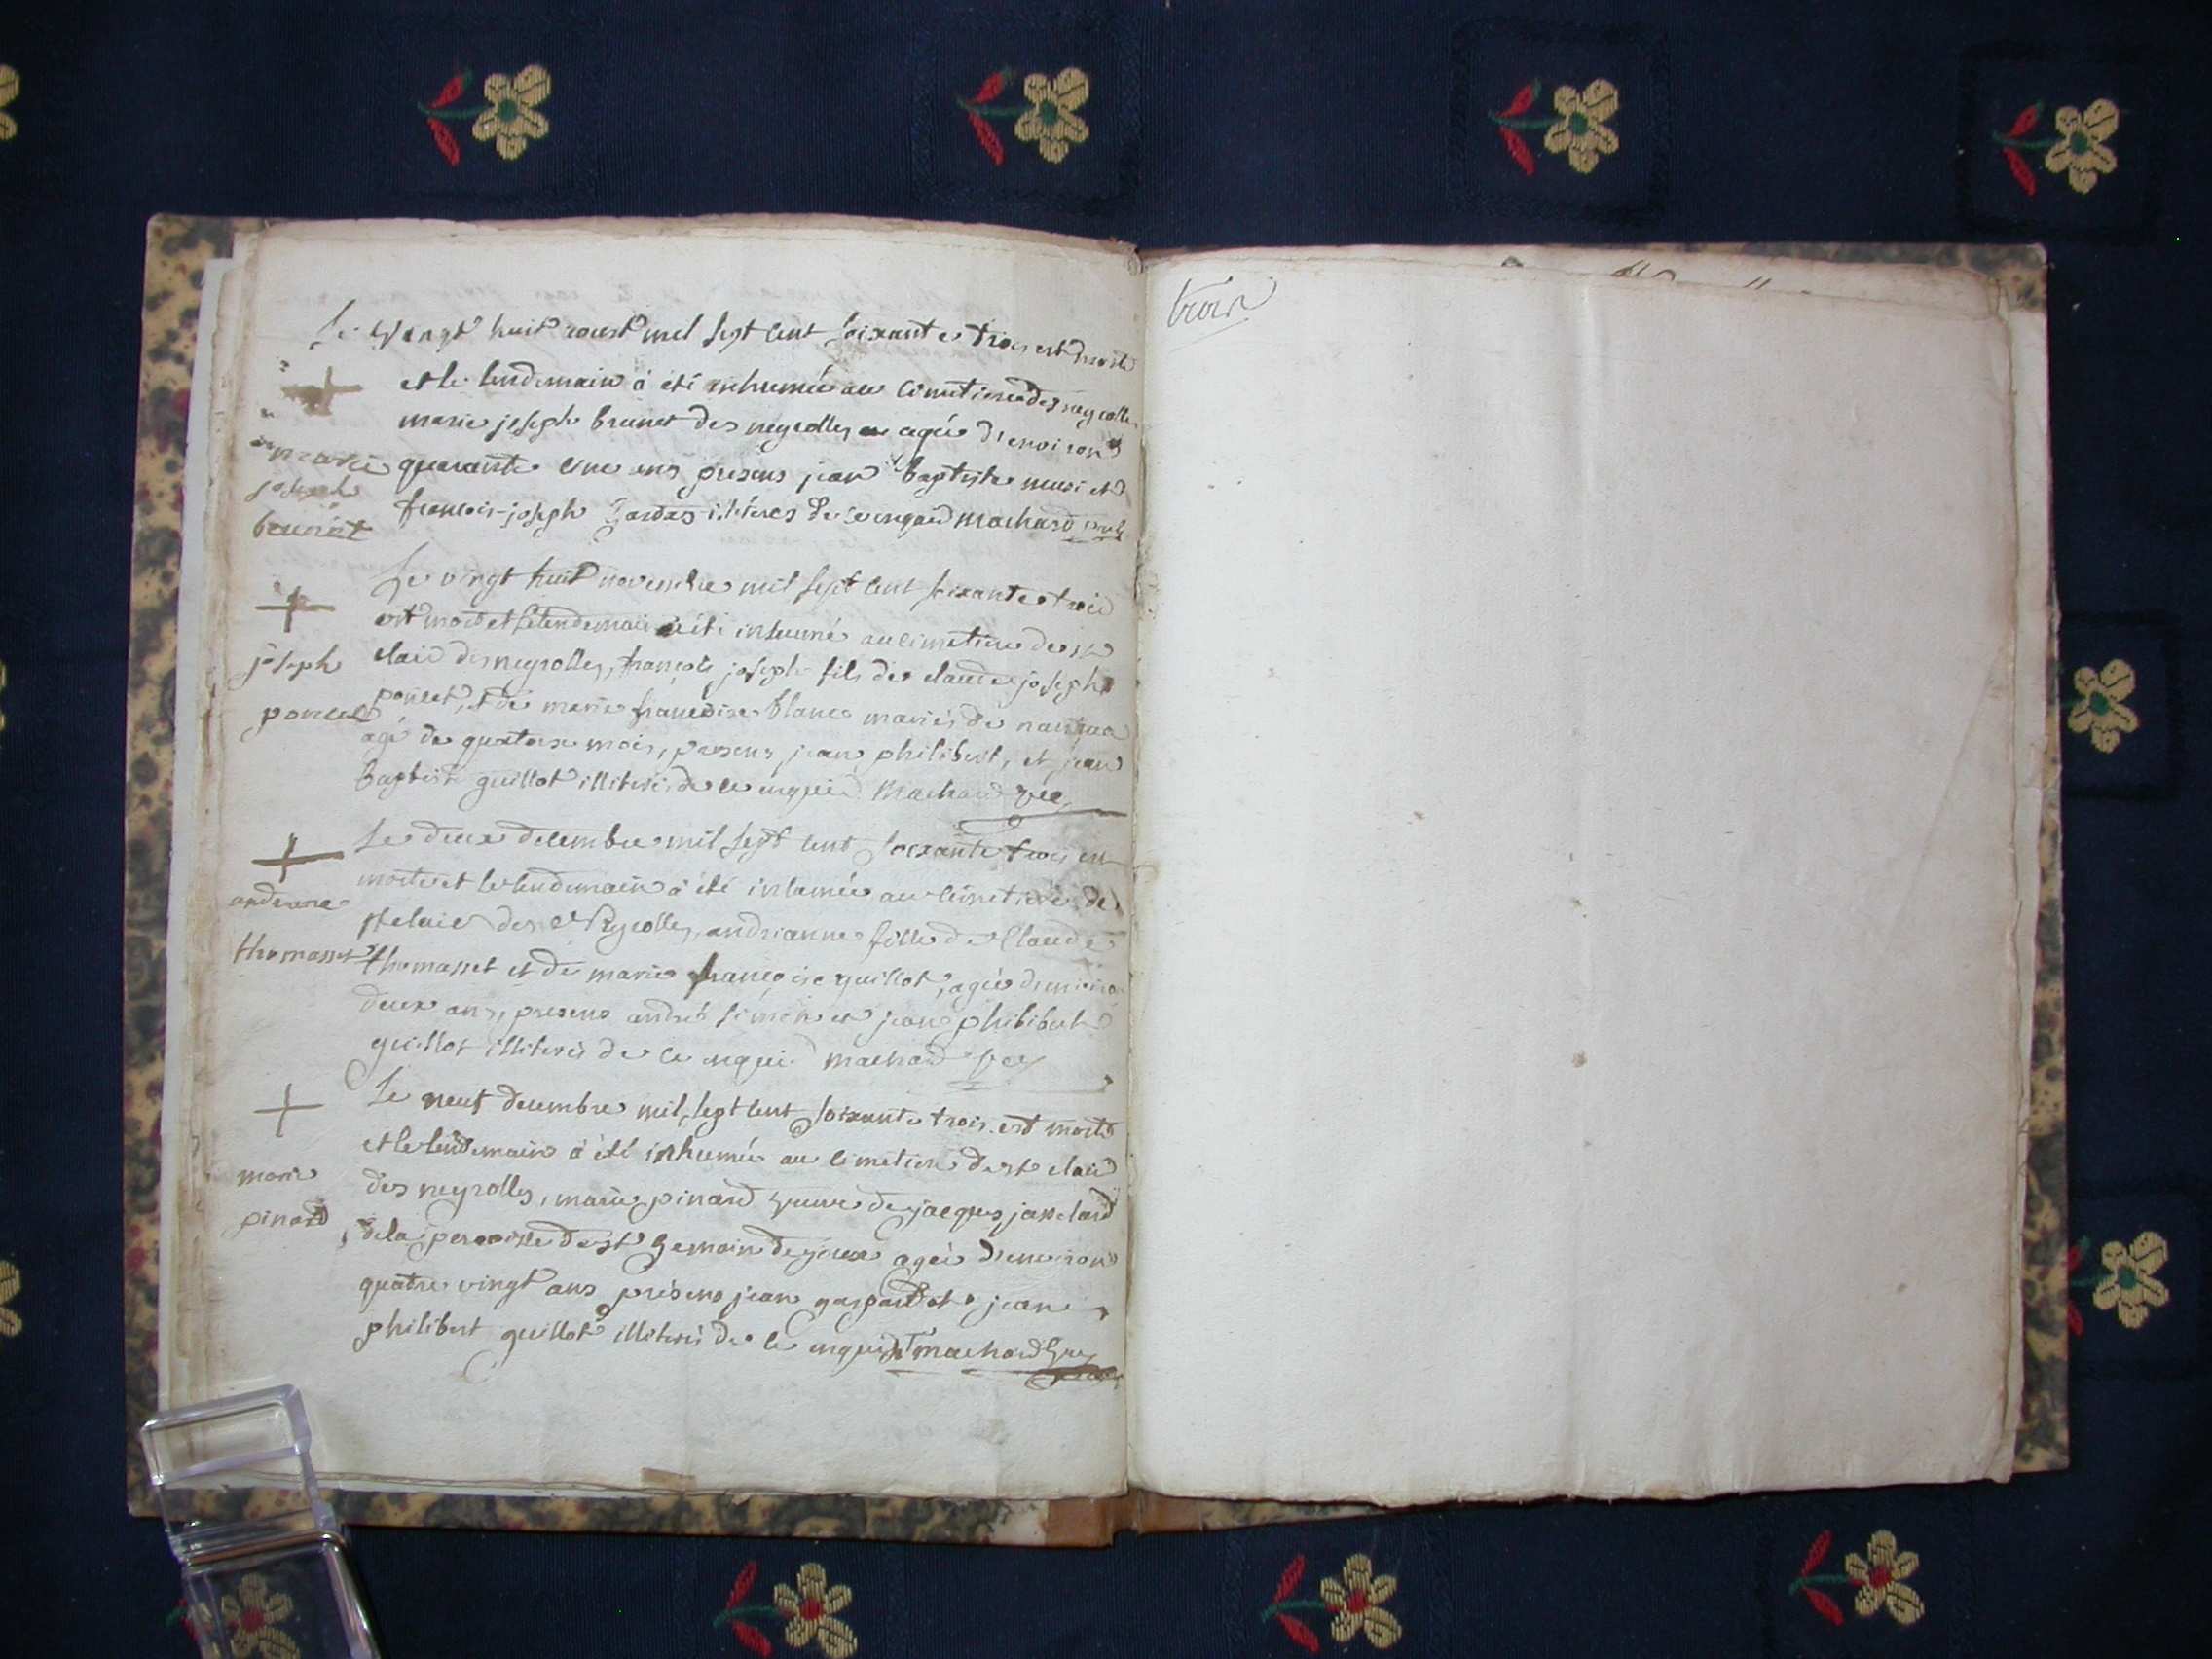 Le vingt huit aoust mil sept cent soixante trois est morte
et le lendemain à été inhumée au cimetiere des neyrolles
marie joseph brunet des neyrolles agée d'environ
marie
joseph
brunet
quarante une ans presens jean baptiste muzi et
françois-joseph illiteres de ce enquis machard
Le vingt huit novembre mil sept cent soixante trois
est mort et le lendemain à été inhumé au cimetiere de st
joseph
poncet
claid des neyrolles, françois joseph fils de claude joseph
poncet, et de marie françoise blanc mariés de nantua
agé de quatorze mois, presens jean philibert, et jean
baptiste guillot illiterés de ce enquis Machard vic
Le deux decembre mil sept cent soixante trois est
morte et le lendemain à été inhumée au cimetiere de
andrianne
thomasset
st claid des Neyrolles, andrianne fille de Claude
thomasset et de marie françoise guillot, agée d'environ
deux ans, presens andré simon et jean philibert
guillot illiterés de ce enquis machard vic
Le neuf decembre mil sept cent soixante trois est morte
et le lendemain à été inhumée au cimetiere de st claid
marie
pinard
des neyrolles, marie pinard veuve de jacques janclard
de la parroisse de st germain de joux agée d'environ
quatre vingt ans présens jean gaspard et jean
philibert guillot illiterés de ce enquis machard vic
trois